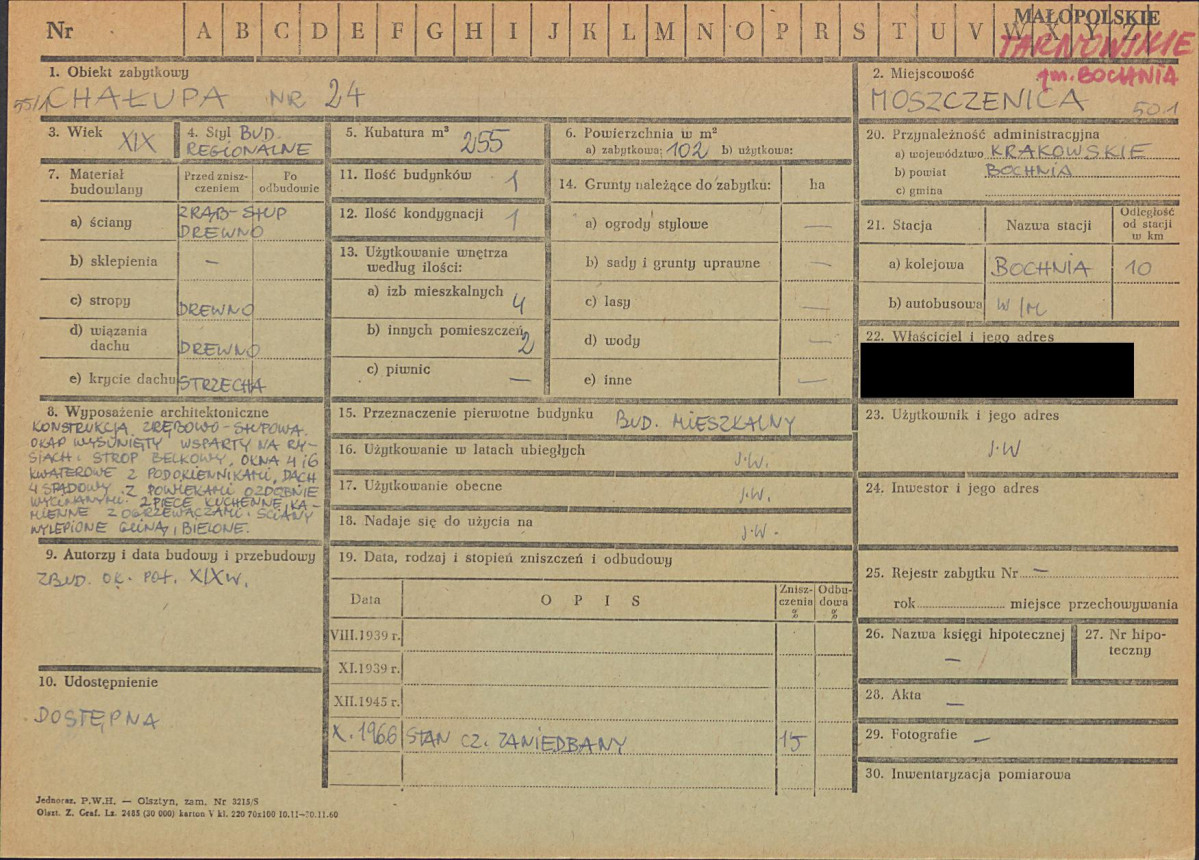 Nr A B C D E F G H I J K L M N O P R S T U V W X Y Z
MAŁOPOLSKIE
TARNOWSKIE
gm. BOCHNIA
1. Obiekt zabytkowy
55/1 CHAŁUPA NR 24
2. Miejscowość
MOSZCZENICA 501
3. Wiek XIX
4. Styl BUD.
REGIONALNE
5. Kubatura m³ 255
6. Powierzchnia w m²
a) zabytkowa: 102 b) użytkowa:
7. Materiał budowlany
Przed zniszczeniem
Po odbudowie
a) ściany ZRĄB-SŁUP
DREWNO
b) sklepienia –
c) stropy DREWNO
d) wiązania dachu DREWNO
e) krycie dachu STRZECHA
8. Wyposażenie architektoniczne
KONSTRUKCJA ZRĘBOWO-SŁUPOWA.
OKAP WYSUNIĘTY WSPARTY NA RY-
SIACH. STROP BELKOWY, OKNA 4 i 6
KWATEROWE Z PODOKIENNIKAMI, DACH
4 SPADOWY Z POWIEKAMI OZDOBNIE
WYCINANYMI. 2 PIECE KUCHENNE, KA-
MIENNE Z OGRZEWACZAMI. ŚCIANY
WYLEPIONE GLINĄ, BIELONE.
9. Autorzy i data budowy i przebudowy
ZBUD. OK. POŁ. XIX W.
10. Udostępnienie
DOSTĘPNA
11. Ilość budynków 1
12. Ilość kondygnacji 1
13. Użytkowanie wnętrza
według ilości:
a) izb mieszkalnych 4
b) innych pomieszczeń 2
c) piwnic –
14. Grunty należące do zabytku: ha
a) ogrody stylowe –
b) sady i grunty uprawne –
c) lasy –
d) wody –
e) inne –
15. Przeznaczenie pierwotne budynku BUD. MIESZKALNY
16. Użytkowanie w latach ubiegłych J.W.
17. Użytkowanie obecne J.W.
18. Nadaje się do użycia na J.W.
19. Data, rodzaj i stopień zniszczeń i odbudowy
Data OPIS Zniszczenia % Odbudowa %
VIII.1939 r.
XI.1939 r.
XII.1945 r.
X. 1966 STAN CZ. ZANIEDBANY 15
20. Przynależność administracyjna
a) województwo KRAKOWSKIE
b) powiat BOCHNIA
c) gmina
21. Stacja Nazwa stacji Odległość od stacji w km
a) kolejowa BOCHNIA 10
b) autobusowa W/M
22. Właściciel i jego adres
23. Użytkownik i jego adres
J.W
24. Inwestor i jego adres
25. Rejestr zabytku Nr –
rok miejsce przechowywania
26. Nazwa księgi hipotecznej
–
27. Nr hipoteczny
28. Akta –
29. Fotografie –
30. Inwentaryzacja pomiarowa
Jednoraz. P.W.H. — Olsztyn, zam. Nr 3215/S
Olszt. Z. Graf. Lz. 2485 (30 000) karton V kl. 220 70x100 10.11–30.11.60